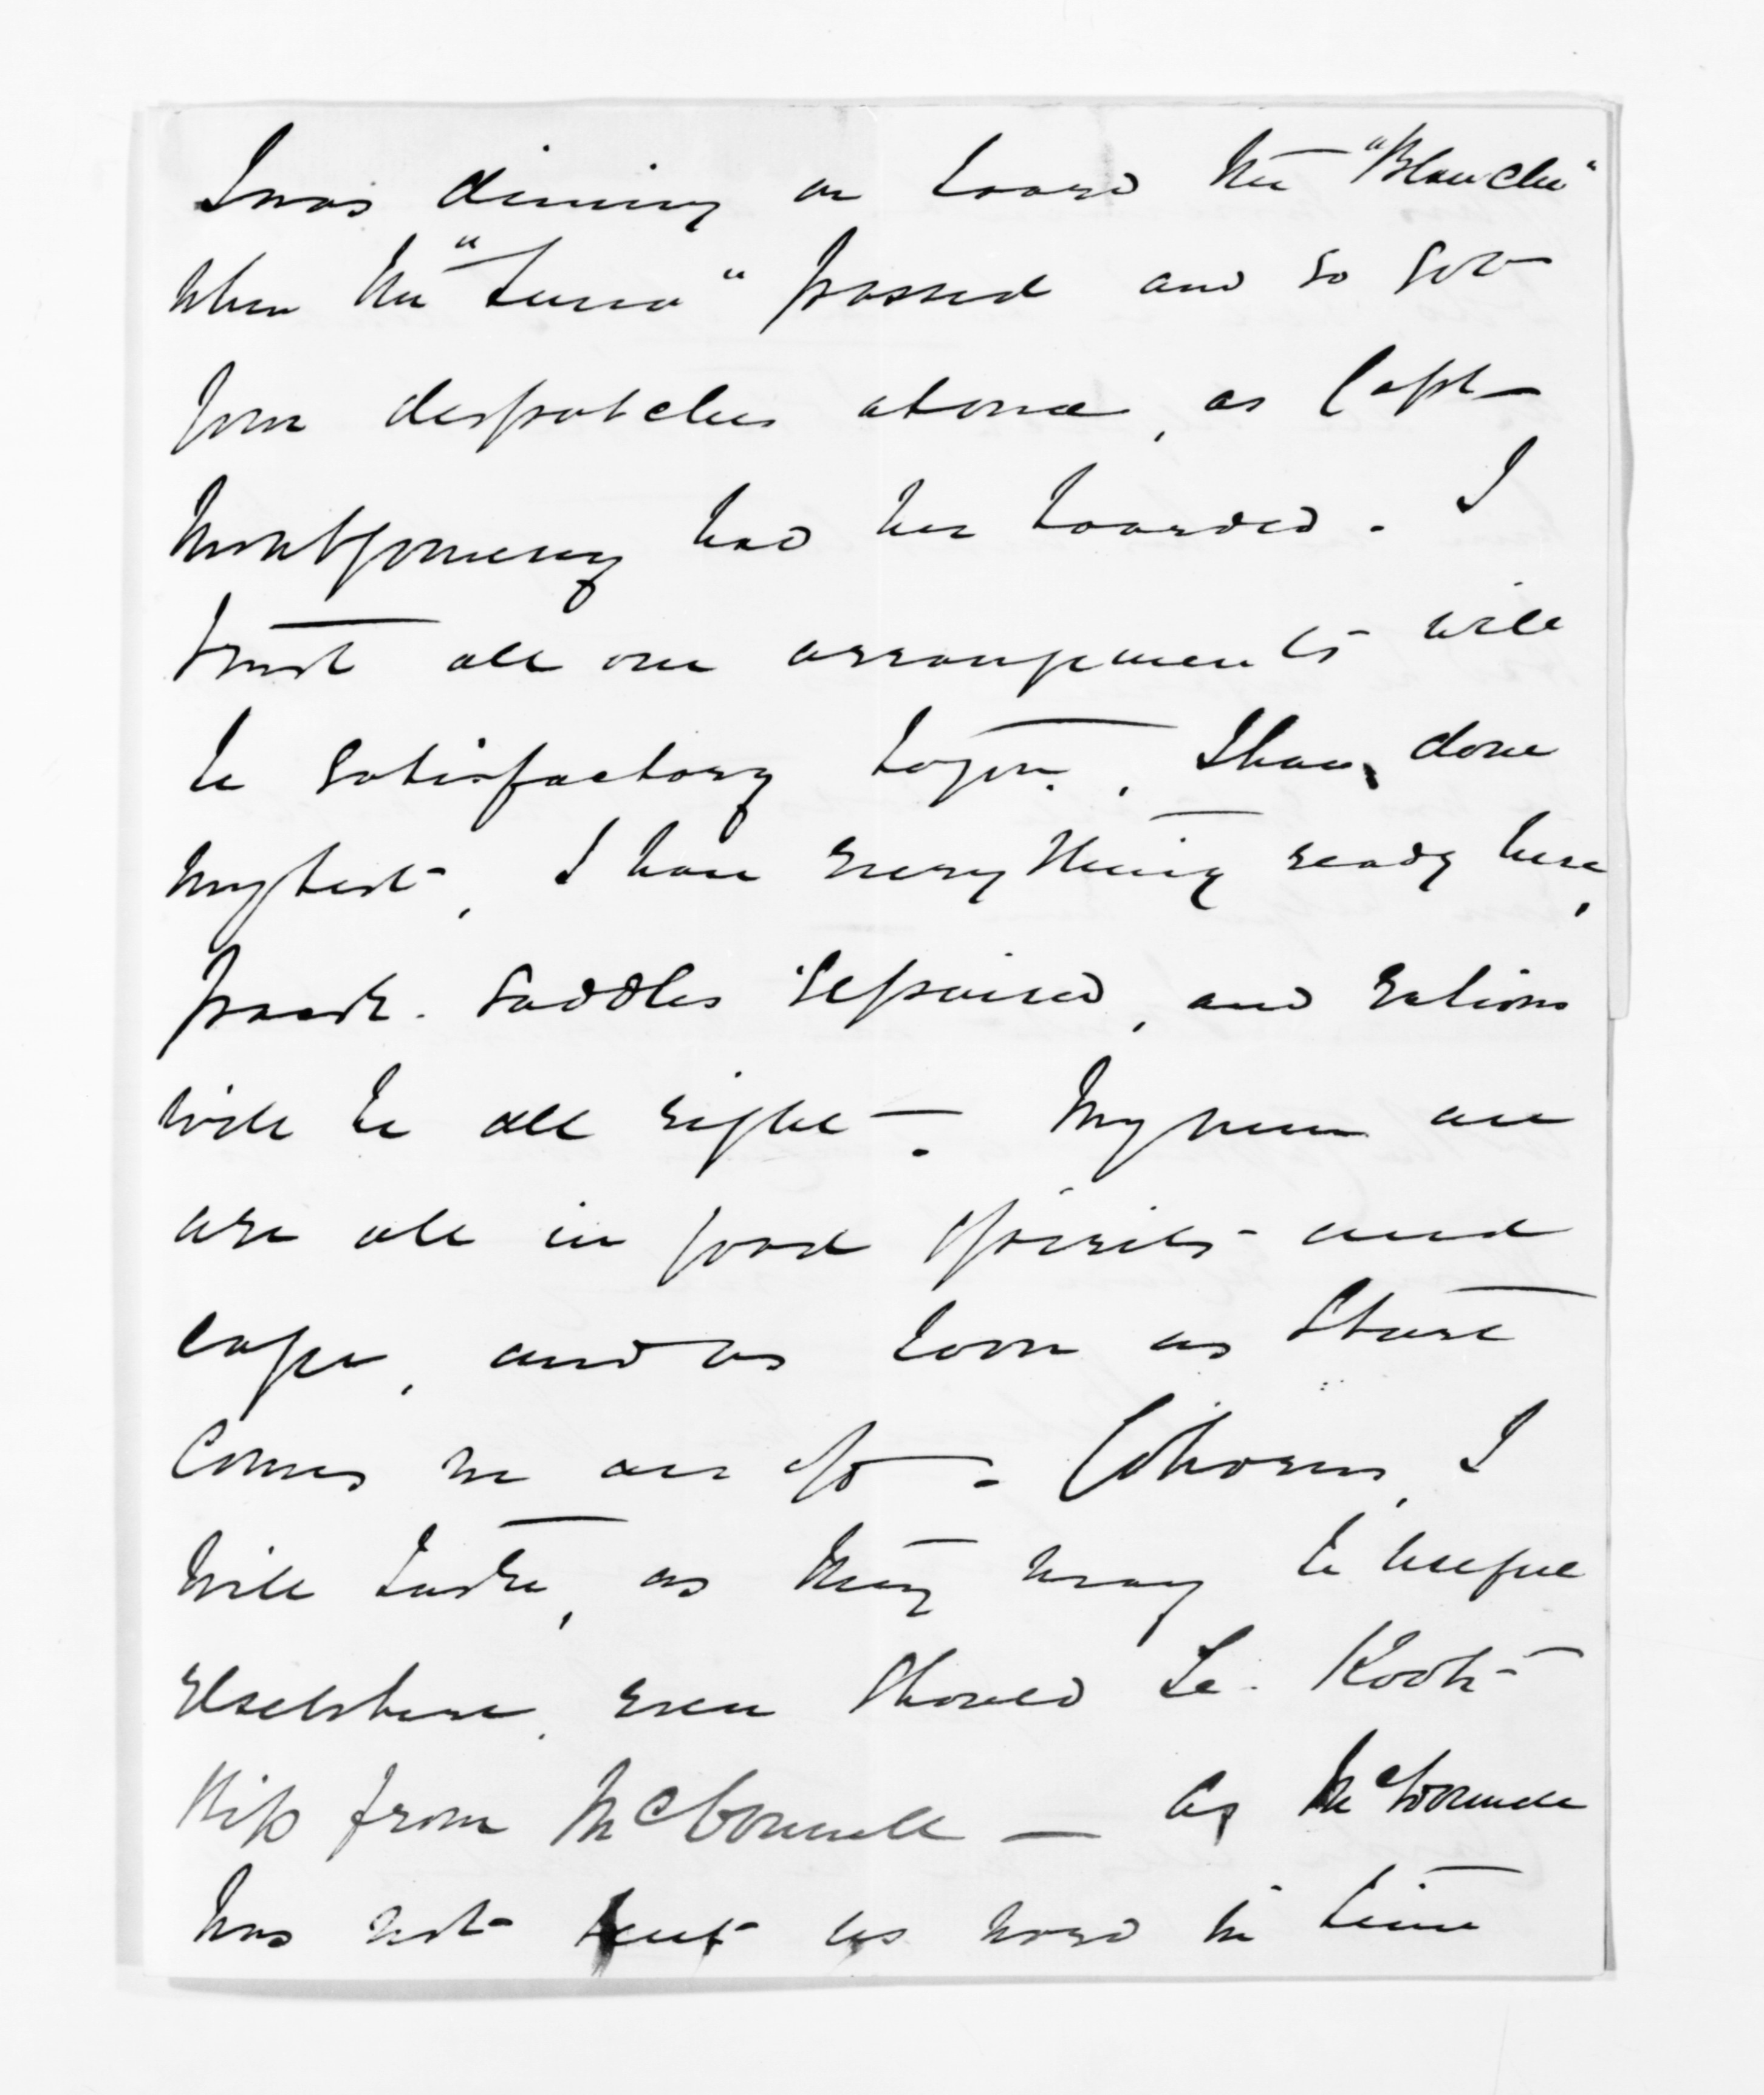 I was dining on board the "Blanche"
when the "Luna" passed and so got
your despatches at once, as Capt
Montgomery had her boarded. I
trust all our arrangements will
be satisfactory to you. I have done
my best, I have everything ready here,
pack-saddles repaired, and rations
will be all right. My men are
are all in good spirits and
eager, and as soon as Sturt
comes we are off. Cohorns I
will take, as they may be useful
elsewhere, even should Te Kooti
slip from McDonnell — As McDonnell
has not sent us word in time